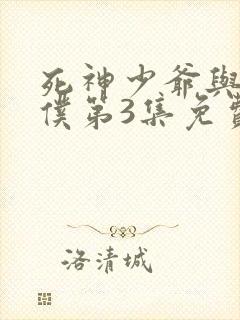 死神少爺與
僕第3集免費
洛清城